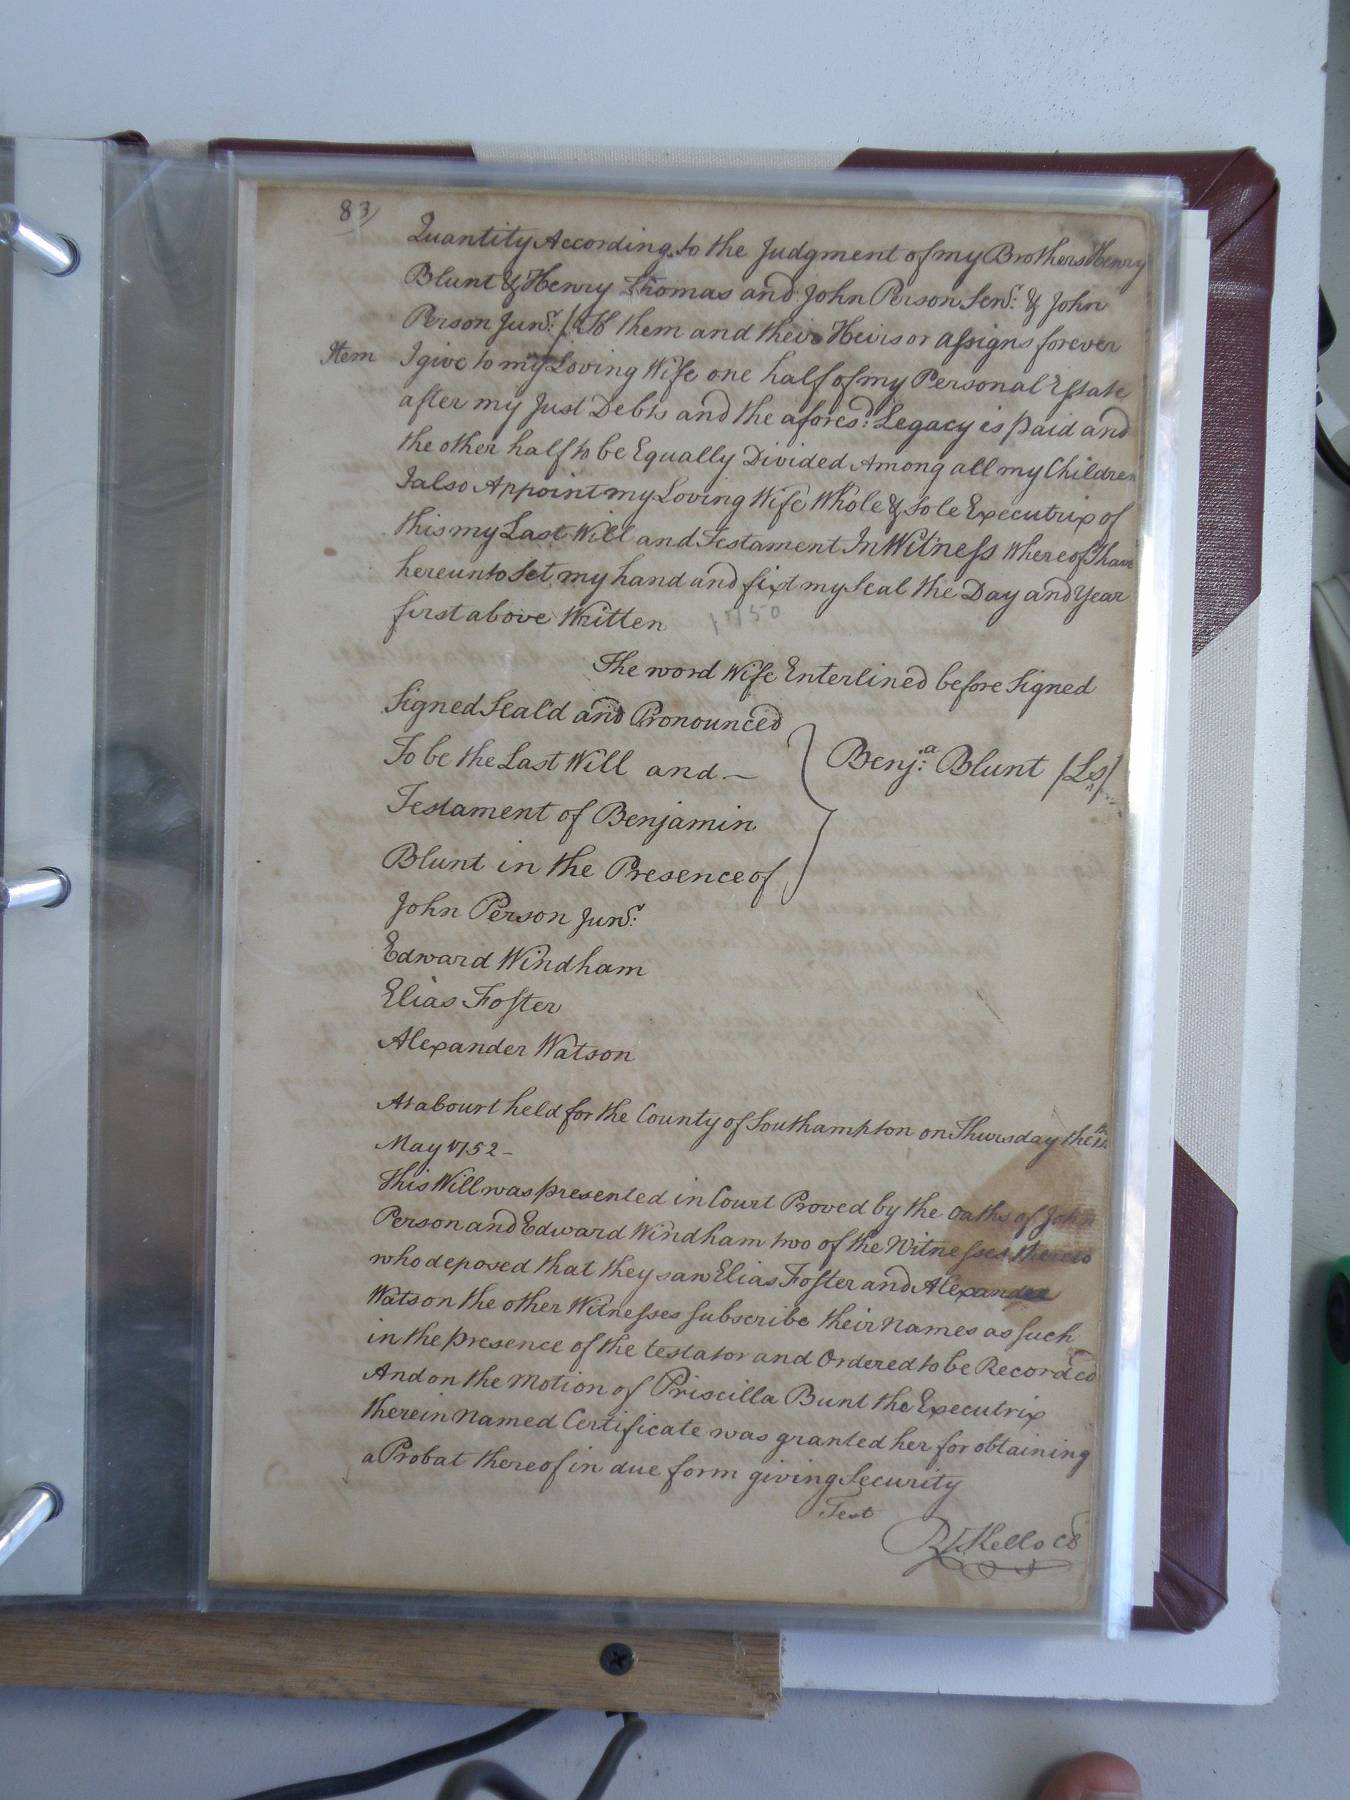 83/
Quantity According to the Judgment of my Brothers Henry
Blunt & Henry Thomas and John Person Senr: & John
Person Junr: / To them and their Heirs or assigns forever
Item I give to my Loving Wife one half of my Personal Estate
after my Just Debts and the aforesd: Legacy is paid and
the other half to be Equally Divided Among all my Children
I also Appoint my Loving Wife Whole & Sole Executrix of
this my Last Will and Testament In Witness Whereof I have
hereunto Set my hand and fixt my Seal the Day and Year
first above Written 1750
The word Wife Enterlined before Signed
Signed Seald and Pronounced
To be the Last Will and —
Testament of Benjamin
Blunt in the Presence of
Benja: Blunt /Ls/
John Person Junr:
Edward Windham
Elias Foster
Alexander Watson
At a Court held for the County of Southampton on Thursday the
May 1752 -
This Will was presented in Court Proved by the Oaths of John
Person and Edward Windham two of the Witnesses thereto
who deposed that they saw Elias Foster and Alexander
Watson the other Witnesses subscribe their Names as such
in the presence of the testator and Ordered to be Recorded
And on the Motion of Priscilla Bunt the Executrix
therein Named Certificate was granted her for obtaining
a Probat thereof in due form giving Security
Test
Kello